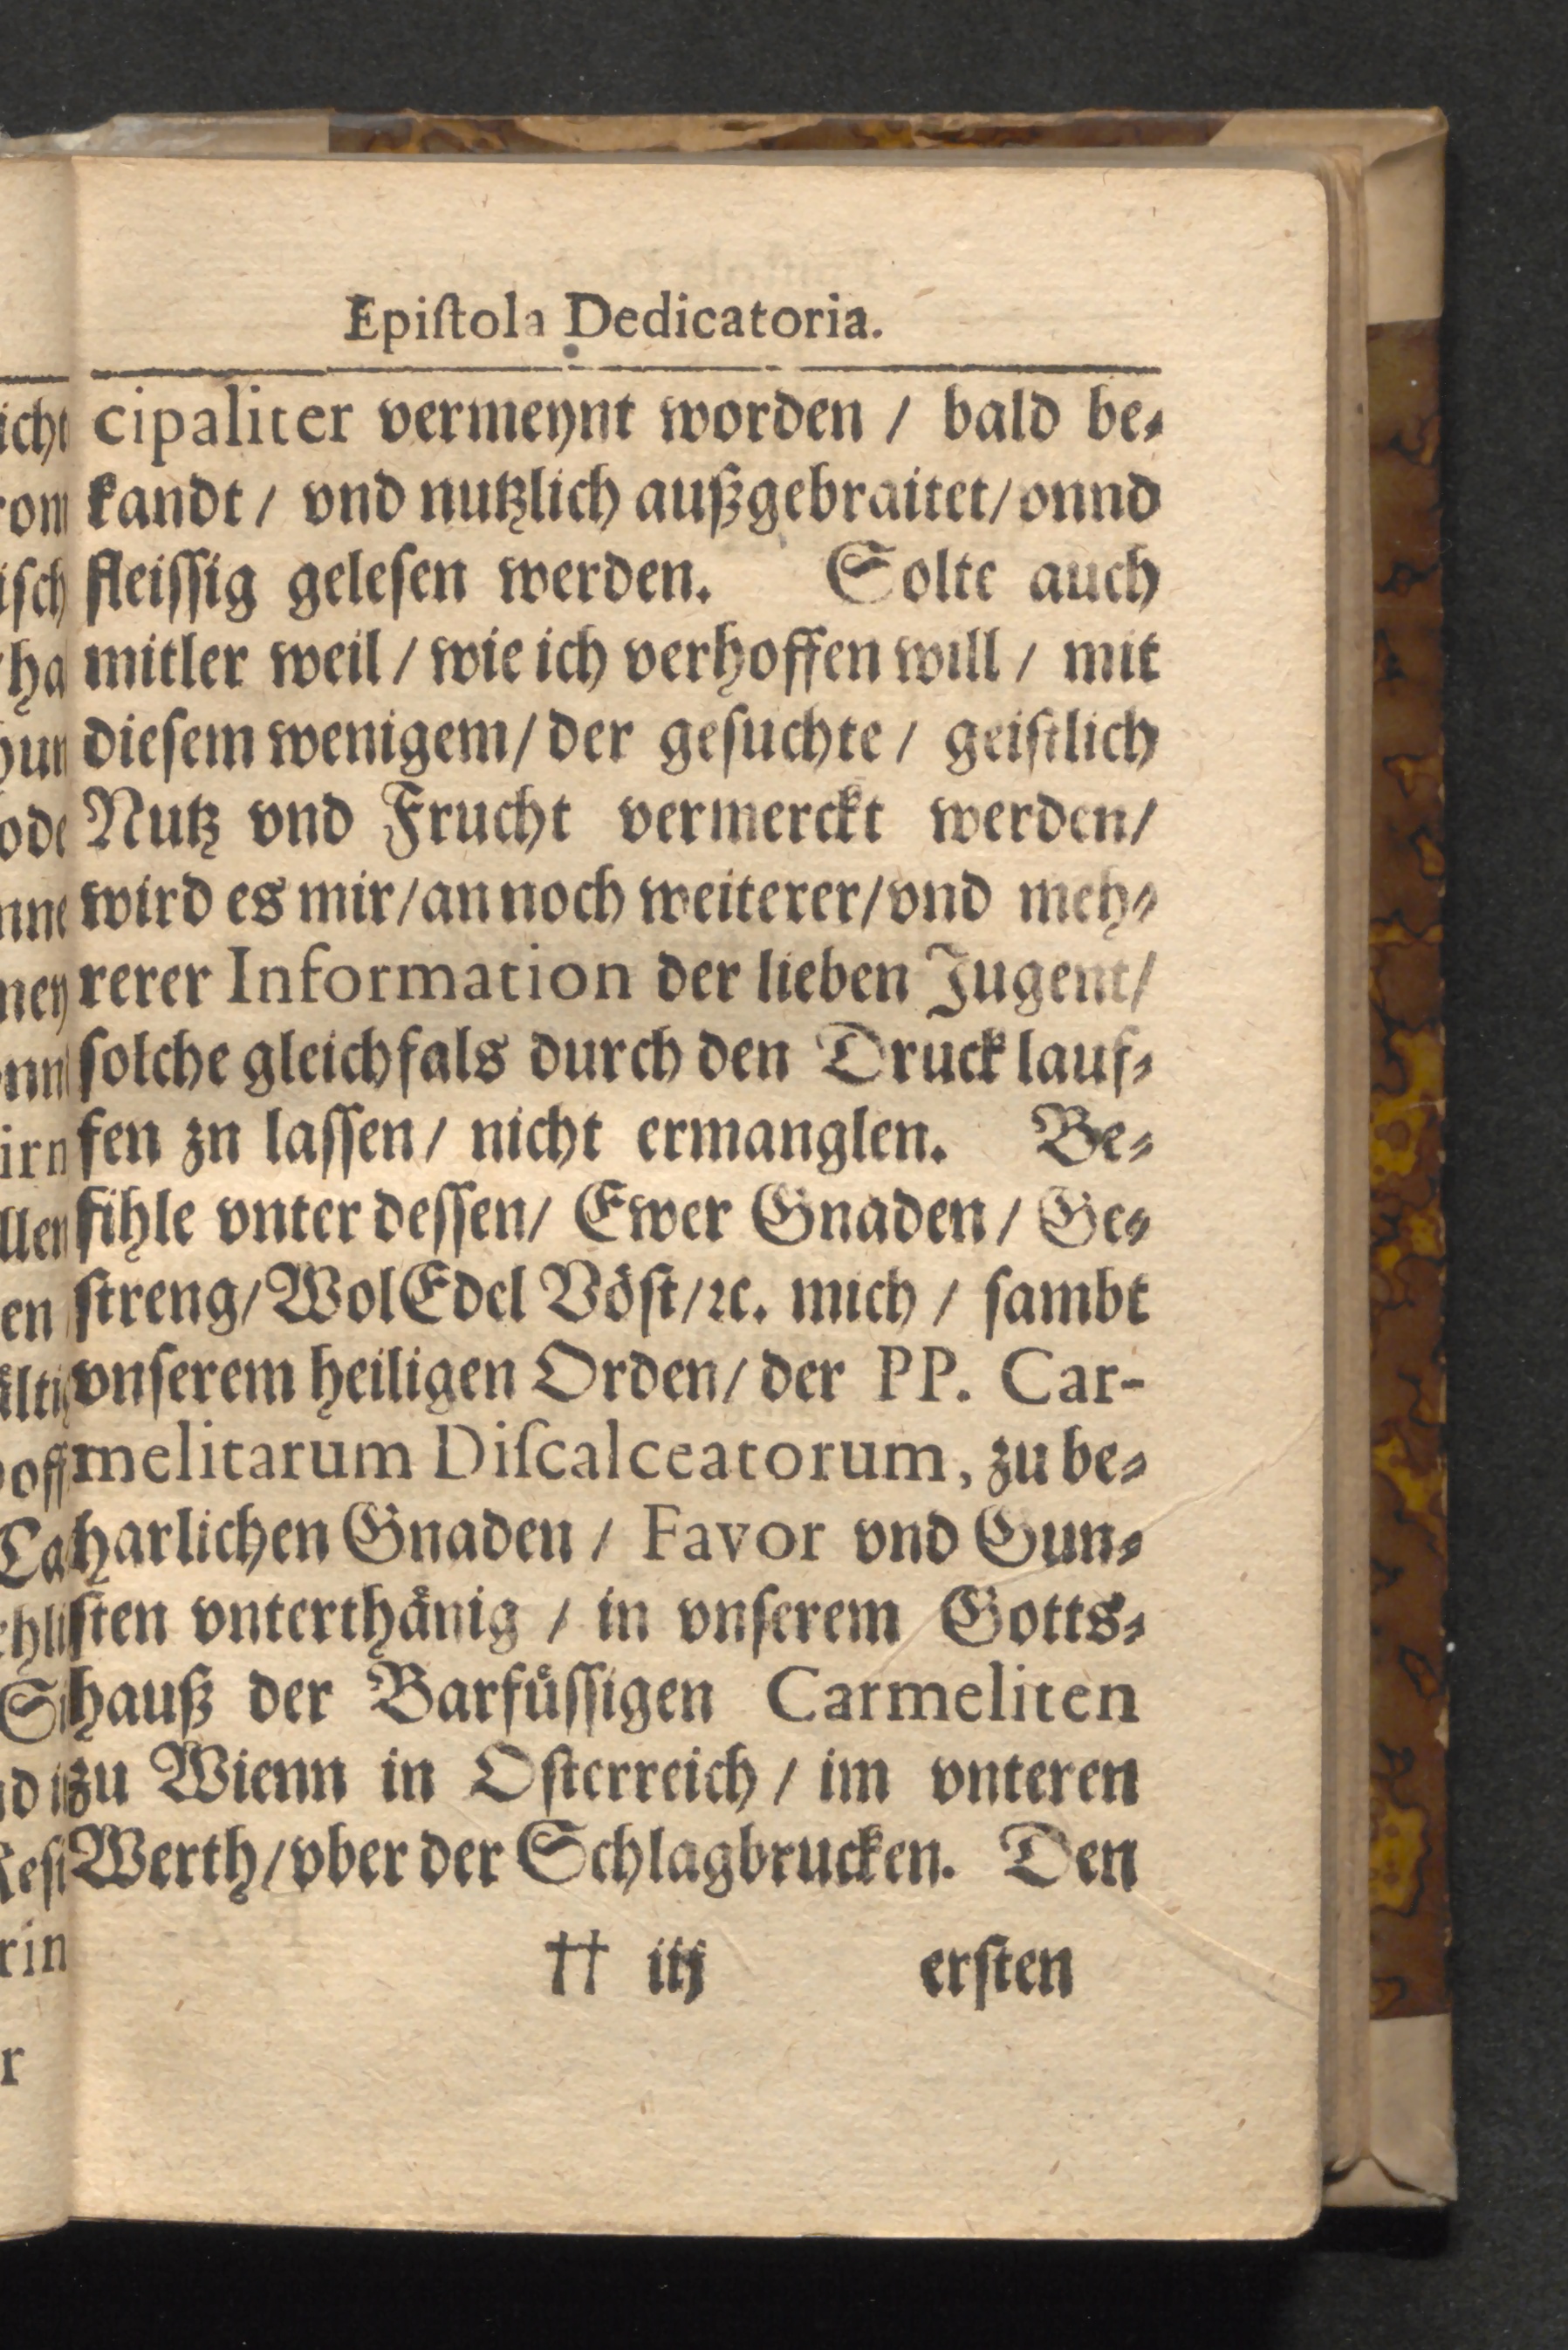 Epiſtola Dedicatoria.
cipaliter vermeynt worden / bald be⸗
kandt / vnd nutzlich außgebraitet/ vnnd
fleiſſig geleſen werden. Solte auch
mitler weil / wie ich verhoffen will / mit
dieſem wenigem/ der geſuchte / geiſtlich
Nutz vnd Frucht vermerckt werden/
wird es mir/ an noch weiterer/ vnd meh⸗
rerer Information der lieben Jugent/
ſolche gleichfals durch den Druck lauf⸗
fen zn laſſen/ nicht ermanglen. Be⸗
fihle vnter deſſen/ Ewer Gnaden / Ge⸗
ſtreng/ WolEdel Vöſt/ ꝛc. mich / ſambt
vnſerem heiligen Orden/ der PP. Car-
melitarum Diſcalceatorum, zu be⸗
harlichen Gnaden / Favor vnd Gun⸗
ſten vnterthänig / in vnſerem Gotts⸗
hauß der Barfüſſigen Carmeliten
zu Wienn in Oſterreich / im vnteren
Werth/ vber der Schlagbrucken. Den
†† iij ersten